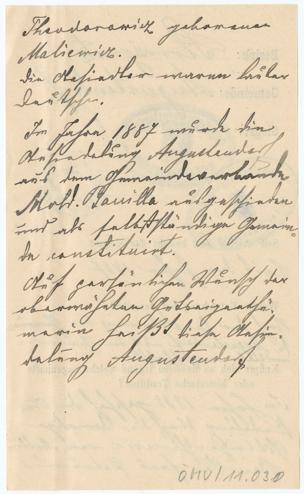 Theodorowicz geborenen
Malicwicz.
Die Ansiedler waren lauter
Deutsche.
Im Jahre 1887 wurde die
Ansiedelung Augustendorf
aus dem Gemeindeverbande
Mold. Banilla ausgeschieden
und als selbstständige Gemein-
de constituirt.
Auf persönlichen Wunsch der
oberwähnten Gutseigenthü-
merin heißt diese Ansie-
delung Augustendorf
ÖMV/11.030